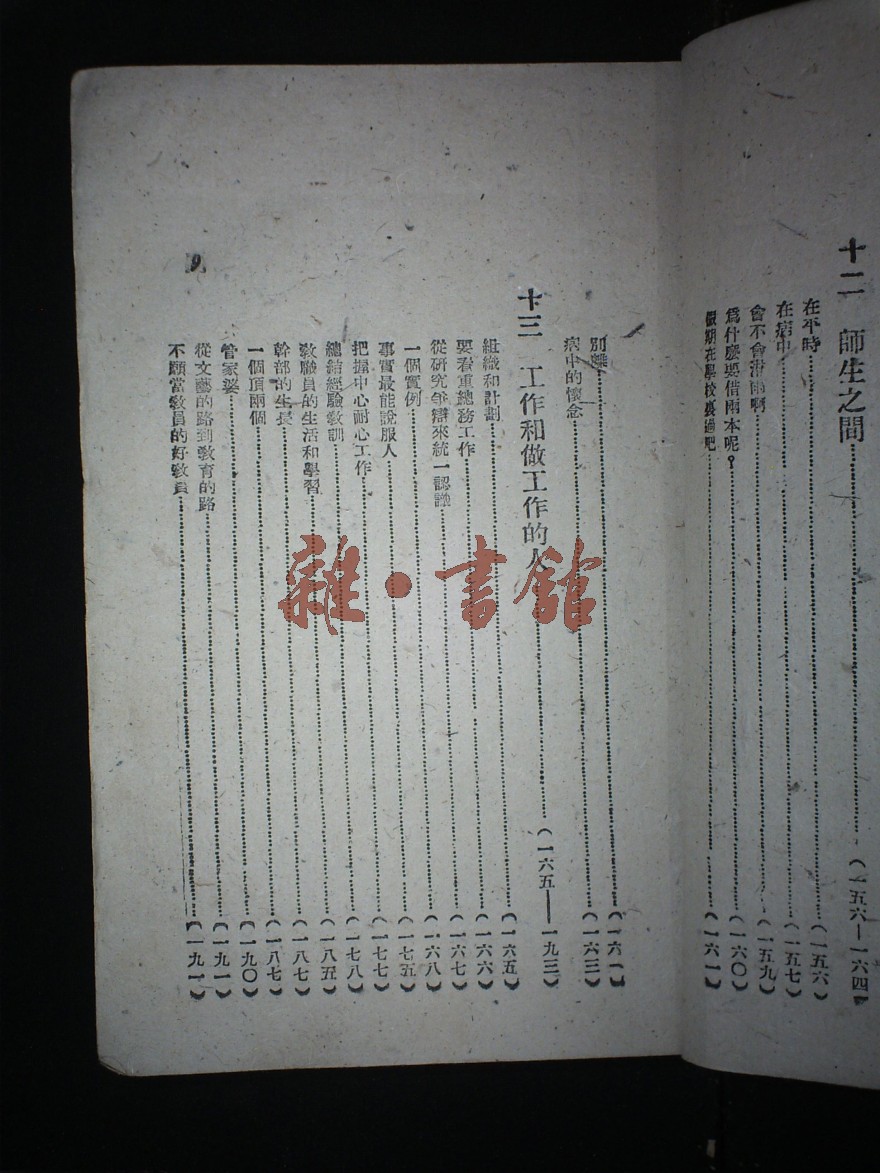 十二 師生之間……(一五六—一六四)
在平時……(一五六)
在病中……(一五七)
會不會雨啊……(一五九)
爲什麽要借兩本呢?……(一六〇)
假期在學校裏過吧……(一六一)
別離……(一六一)
病中的懷念……(一六三)
十三 工作和做工作的人……(一六五—一九三)
組織和計劃……(一六五)
要看重總務工作……(一六六)
從研究爭辯來統一認識……(一六七)
一個實例……(一六八)
事實最能說服人……(一七五)
把握中心耐心工作……(一七七)
總結經驗教訓……(一七八)
教職員的生活和學習……(一八五)
幹部的生長……(一八七)
一個頂兩個……(一八七)
管家婆……(一九〇)
從文藝的路到教育的路……(一九一)
不願當教員的好教員……(一九一)
9
雜·書館